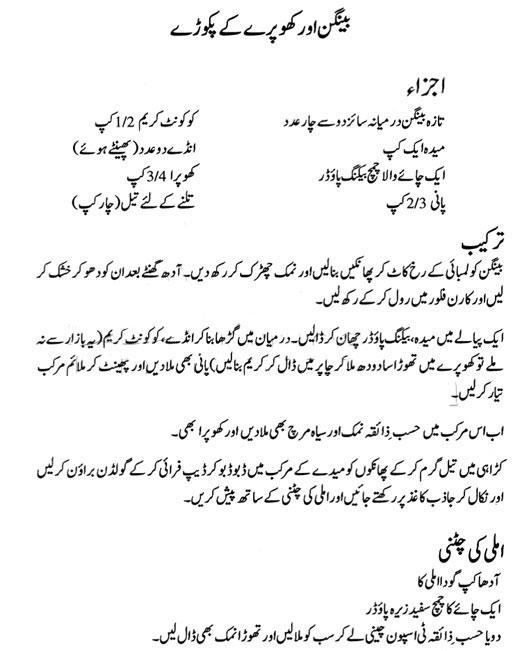 بینگن اور کھوپرے کے پکوڑے
اجزاء
تازہ بینگن درمیانہ سائز دو سے چار عدد
کوکونٹ کریم 1/2 کپ
میدہ ایک کپ
انڈے دو عدد (پھینٹے ہوئے)
ایک چائے والا چمچ بیکنگ پاؤڈر
کھوپرا 3/4 کپ
پانی 2/3 کپ
تلنے کے لئے تیل (چار کپ)
ترکیب
بینگن کو لمبائی کے رخ کاٹ کر پھانکیں بنالیں اور نمک چھڑک کر رکھ دیں۔ آدھ گھنٹے بعد ان کو دھو کر خشک کر
لیں اور کارن فلور میں رول کر کے رکھ لیں۔
ایک پیالے میں میدہ، بیکنگ پاؤڈر چھان کر ڈالیں۔ درمیان میں گڑھا بنا کر انڈے، کوکونٹ کریم (یہ بازار سے نہ
ملے تو کھوپرے میں تھوڑا سا دودھ ملا کر چاپر میں ڈال کر کریم بنالیں) پانی بھی ملادیں اور پھینٹ کر ملائم مرکب
تیار کرلیں۔
اب اس مرکب میں حسبِ ذائقہ نمک اور سیاہ مرچ بھی ملادیں اور کھوپرا بھی۔
کڑاہی میں تیل گرم کر کے پھانکوں کو میدے کے مرکب میں ڈبو ڈبو کر ڈیپ فرائی کر کے گولڈن براؤن کر لیں
اور نکال کر جاذب کاغذ پر رکھتے جائیں اور املی کی چٹنی کے ساتھ پیش کریں۔
املی کی چٹنی
آدھا کپ گودا املی کا
ایک چائے کا چمچ سفید زیرہ پاؤڈر
دو یا حسبِ ذائقہ ٹی اسپون چینی لے کر سب کو ملالیں اور تھوڑا نمک بھی ڈال لیں۔